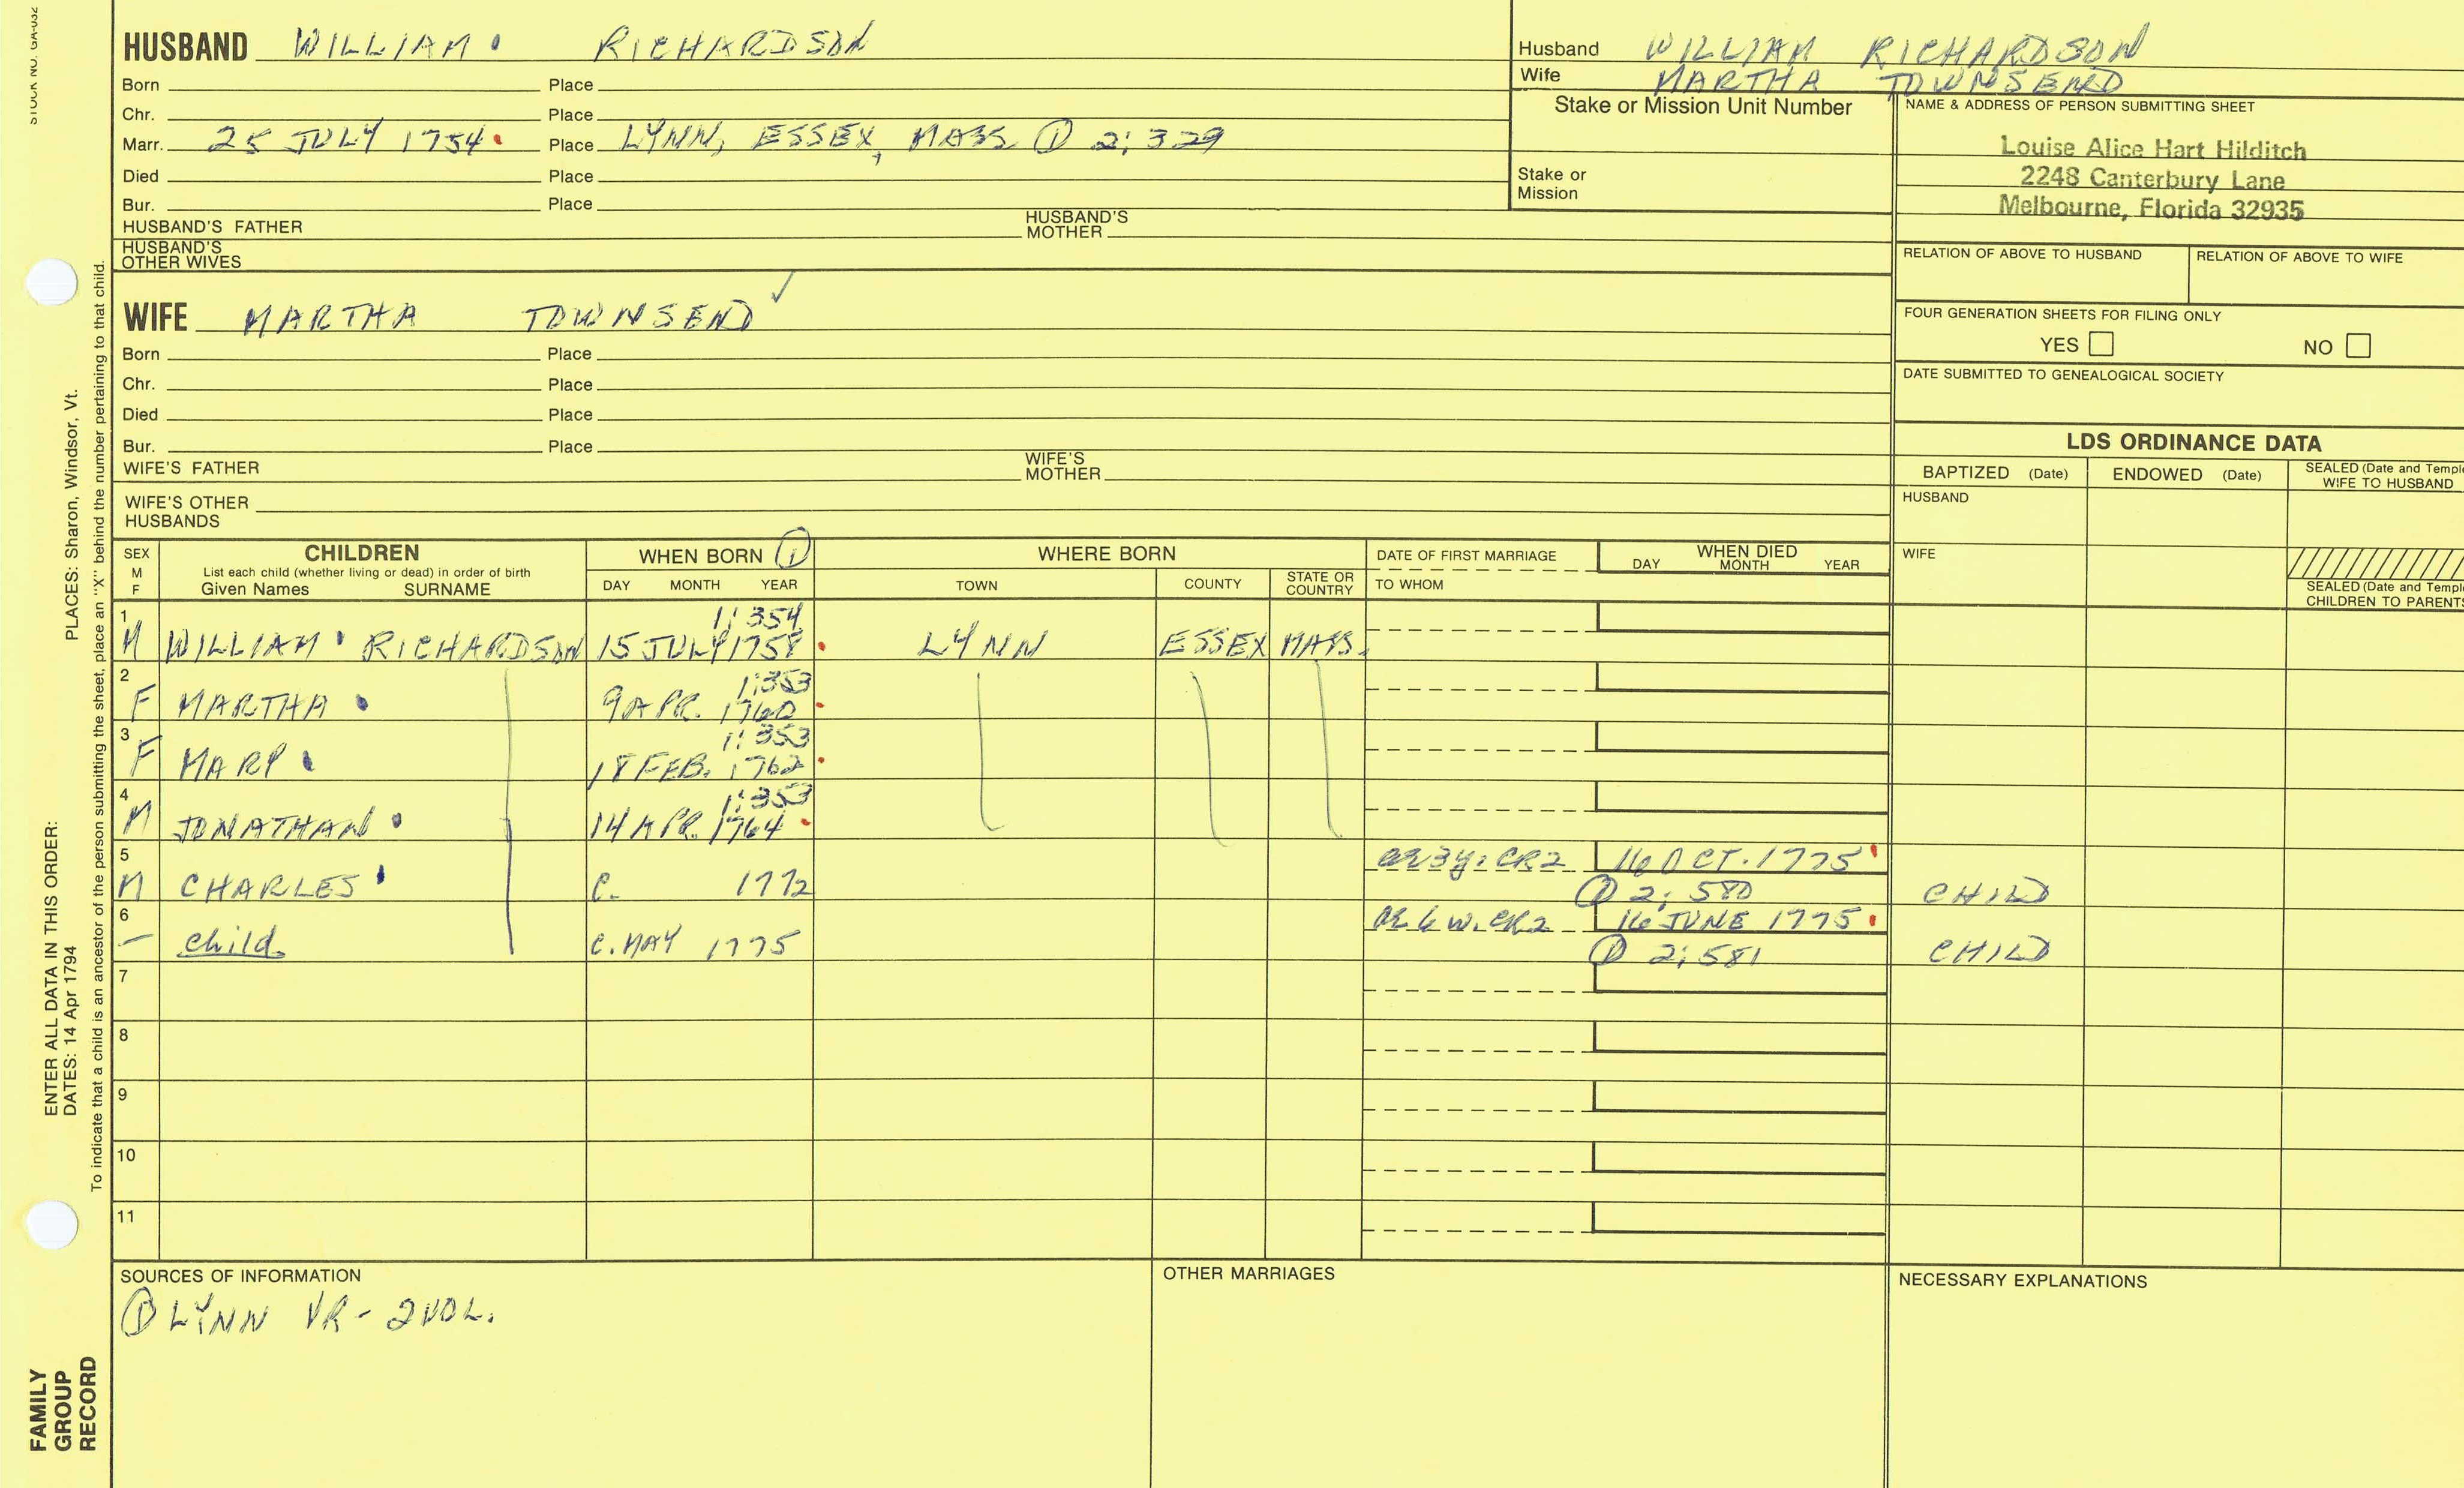 STOCK NO. GA-032
HUSBAND WILLIAM RICHARDSON
Born Place
Chr. Place
Marr. 25 JULY 1754 Place LYNN, ESSEX, MASS ① 2:329
Died Place
Bur. Place
HUSBAND'S FATHER HUSBAND'S MOTHER
HUSBAND'S OTHER WIVES
Husband WILLIAM RICHARDSON
Wife MARTHA TOWNSEND
Stake or Mission Unit Number
Stake or Mission
NAME & ADDRESS OF PERSON SUBMITTING SHEET
Louise Alice Hart Hilditch
2248 Canterbury Lane
Melbourne, Florida 32935
RELATION OF ABOVE TO HUSBAND RELATION OF ABOVE TO WIFE
FOUR GENERATION SHEETS FOR FILING ONLY
YES NO
DATE SUBMITTED TO GENEALOGICAL SOCIETY
WIFE MARTHA TOWNSEND ✓
Born Place
Chr. Place
Died Place
Bur. Place
WIFE'S FATHER WIFE'S MOTHER
WIFE'S OTHER HUSBANDS
LDS ORDINANCE DATA
BAPTIZED (Date) ENDOWED (Date) SEALED (Date and Temple
WIFE TO HUSBAND
HUSBAND
WIFE
SEALED (Date and Temple
CHILDREN TO PARENTS
SEX M F
CHILDREN
List each child (whether living or dead) in order of birth
Given Names SURNAME
WHEN BORN ①
DAY MONTH YEAR
WHERE BORN
TOWN COUNTY STATE OR COUNTRY
DATE OF FIRST MARRIAGE
TO WHOM
WHEN DIED
DAY MONTH YEAR
1 1:354
M WILLIAM RICHARDSON 15 JULY 1758 LYNN ESSEX MASS.
2 1:353
F MARTHA 9 APR. 1760
3 1:353
F MARY 18 FEB. 1762
4 1:353
M JONATHAN 14 APR. 1764
5 ae 3y. CR2 16 OCT. 1775
M CHARLES C. 1772 ① 2:580 CHILD
6 ae 6 w. CR2 16 JUNE 1775
— child C. MAY 1775 ① 2:581 CHILD
7
8
9
10
11
SOURCES OF INFORMATION
① LYNN VR - 2 VOL.
OTHER MARRIAGES
NECESSARY EXPLANATIONS
ENTER ALL DATA IN THIS ORDER:
DATES: 14 Apr 1794 PLACES: Sharon, Windsor, Vt.
To indicate that a child is an ancestor of the person submitting the sheet, place an "X" behind the number pertaining to that child.
FAMILY
GROUP
RECORD